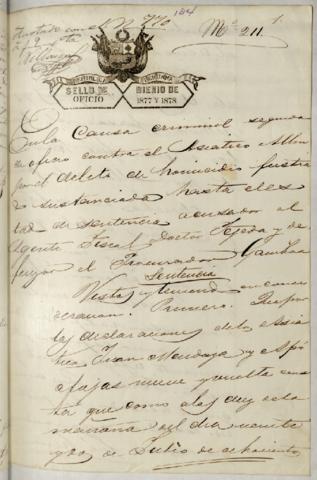 N. 770
184
Ma. 211
SELLO DE OFICIO
BIENIO DE 1877 Y 1878
En la Causa criminal seguida
de oficio contra el Asiatico
por el delito de homicidio frustra
do sustanciada hasta el es
tado de sentencia acusador el
Agente Fiscal Doctor Tejeda y de
fensor el Procurador Gamboa
Sentencia
Vista y teniendo en consi
deracion: Primero: Que por
las declaraciones de los Asia
ticos Juan Mendoza y
a fojas nueve y vuelta cons
ta que como a las seis de la
mañana del dia veinte
y dos de Julio de ochocientos